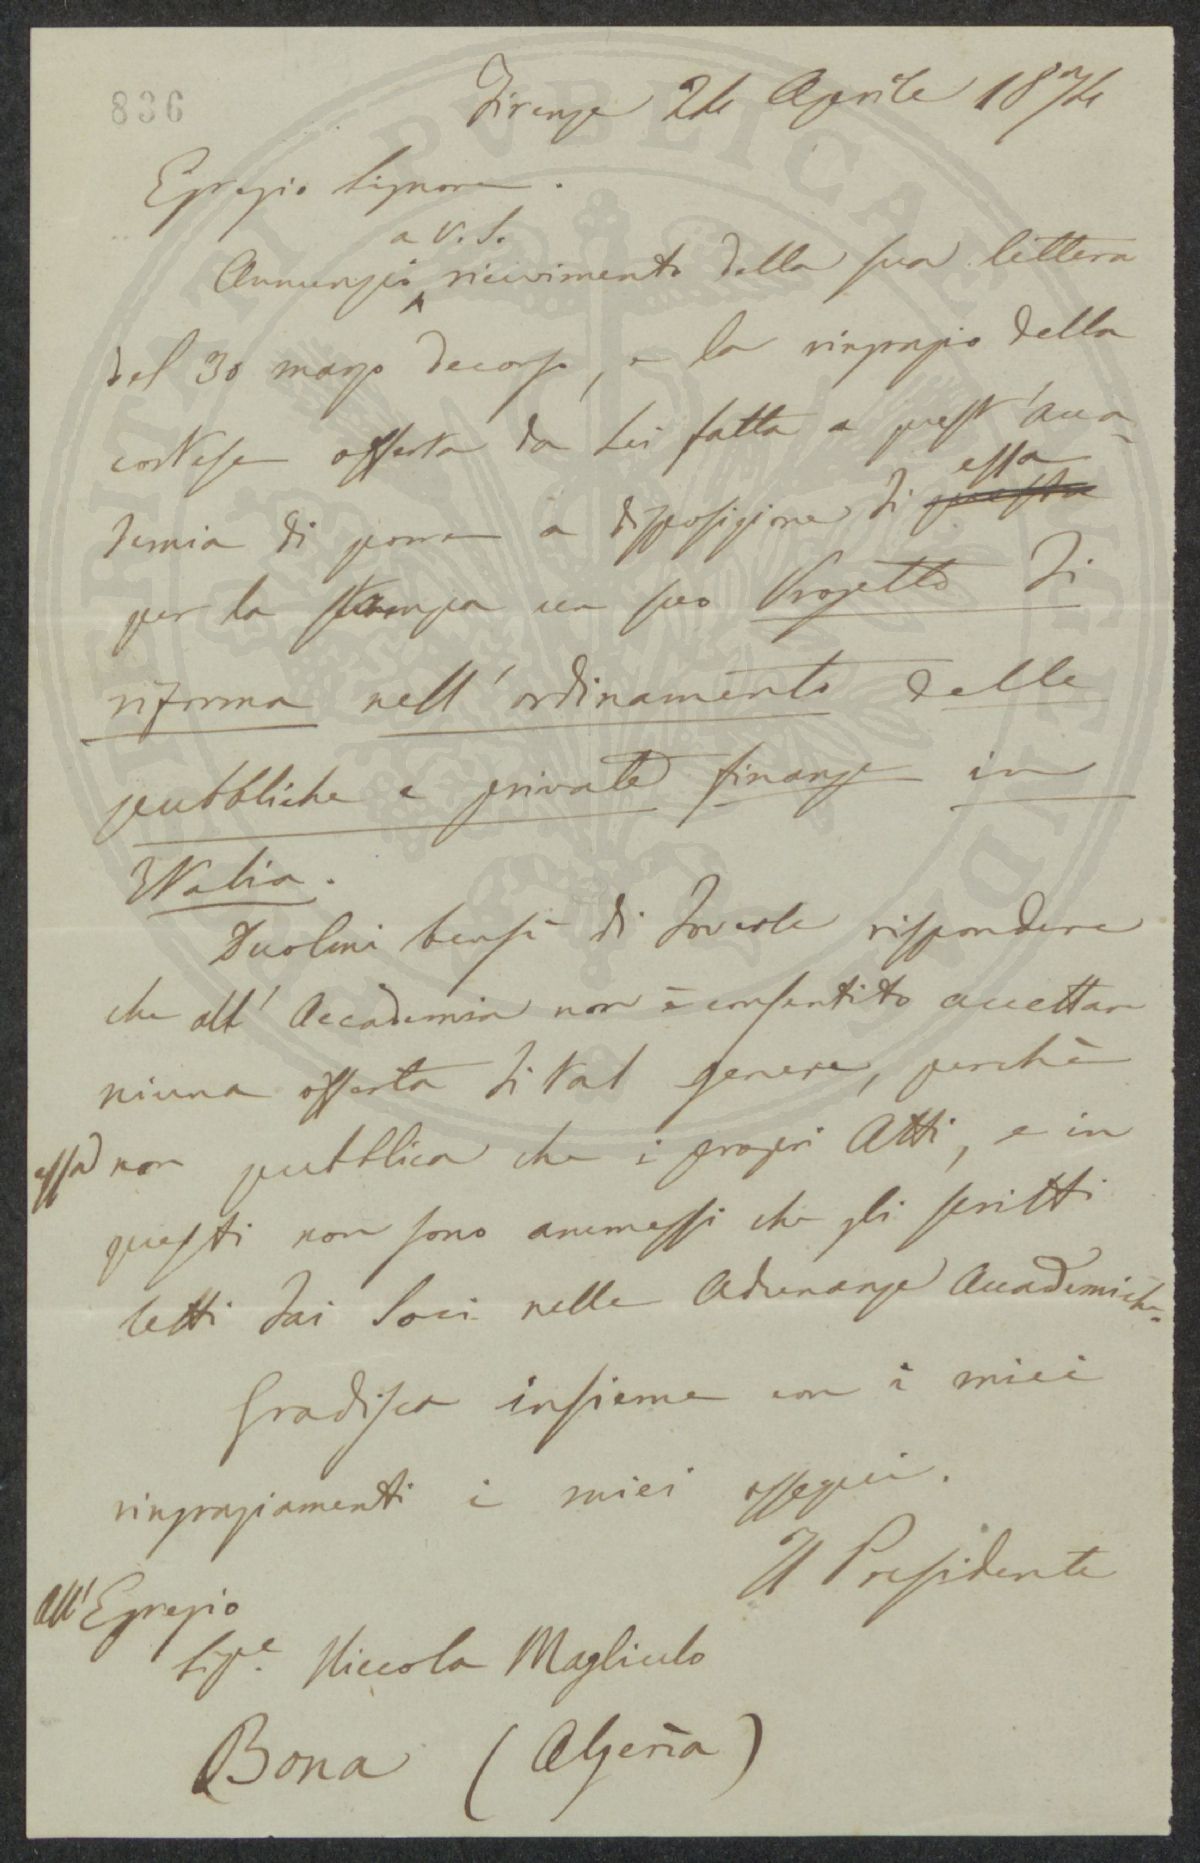 836
Firenze 24 Aprile 1874
Egregio Signore.
a V. S.
Annunzio ricevimento della sua lettera
del 30 marzo decorso, e la ringrazio della
cortese offerta da Lei fatta a quest'Acca-
essa
demia di porre a disposizione di questa
per la stampa un suo Progetto di
riforma nell'ordinamento delle
pubbliche e private finanze in
Italia.
Duolmi bensì di doverle rispondere
che all'Accademia non è consentito accettare
niuna offerta di tal genere, perchè
essa non pubblica che i propri Atti, e in
questi non sono ammessi che gli scritti
letti dai Soci nelle Adunanze Accademiche.
Gradisca insieme con i miei
ringraziamenti i miei ossequi.
Il Presidente
All'Egregio
Sigre. Niccola Magliulo
Bona (Algeria)